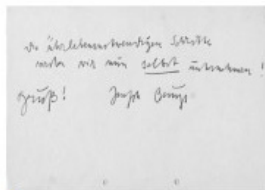 die überlebensnotwendigen Schritte
werden wir nun selbst unternehmen!
Gruß! Joseph Beuys